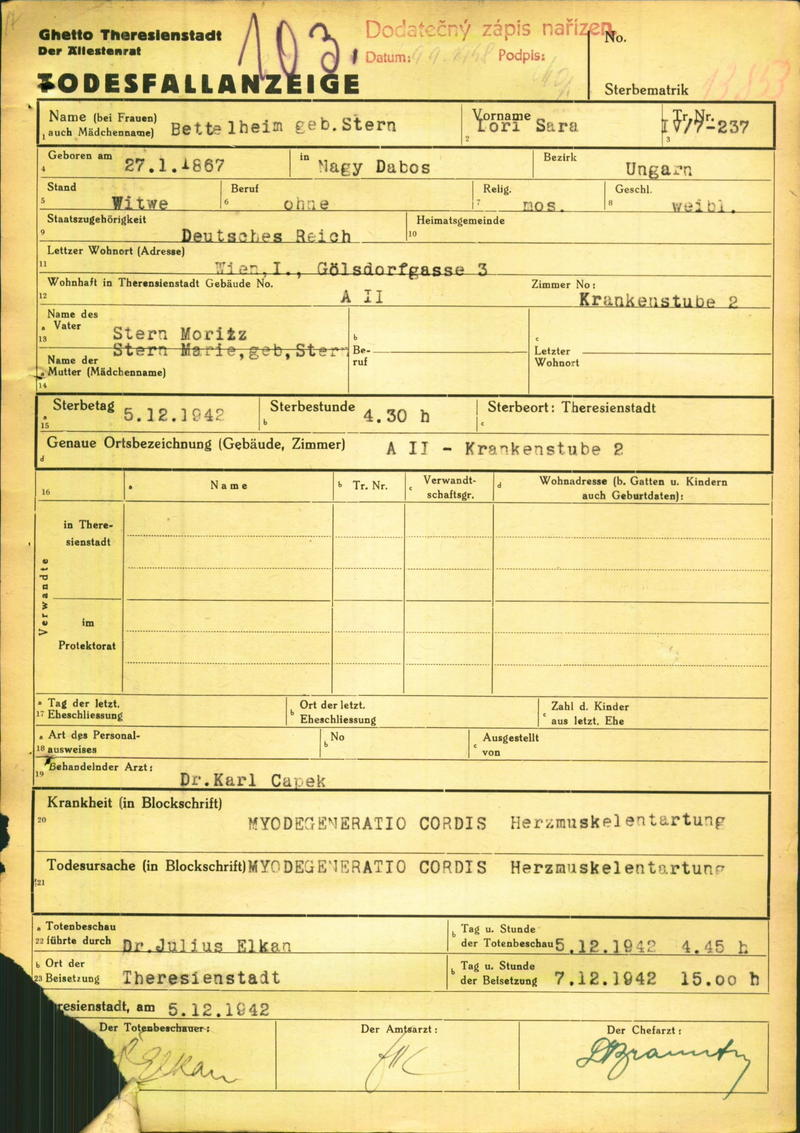 Ghetto Theresienstadt
Der Ältestenrat
TODESFALLANZEIGE
103
Dodatečný zápis nařízen
Datum: Podpis:
No.
Sterbematrik
Name (bei Frauen)
1 auch Mädchenname) Bettelheim geb.Stern
Vorname
2 Lori Sara
Tr. Nr.
3 IV/7-237
4 Geboren am 27.1.1867 in Nagy Dabos Bezirk Ungarn
5 Stand Witwe 6 Beruf ohne 7 Relig. mos. 8 Geschl. weibl.
9 Staatszugehörigkeit Deutsches Reich 10 Heimatsgemeinde
11 Lettzer Wohnort (Adresse) Wien,I., Gölsdorfgasse 3
12 Wohnhaft in Therensienstadt Gebäude No. A II Zimmer No: Krankenstube 2
Name des
a Vater
13 Stern Moritz
Stern Marie,geb,Stern
b Be-
ruf
c Letzter
Wohnort
Name der
a Mutter (Mädchenname)
14
a 15 Sterbetag 5.12.1942 b Sterbestunde 4.30 h c Sterbeort: Theresienstadt
d Genaue Ortsbezeichnung (Gebäude, Zimmer) A II - Krankenstube 2
16 a Name b Tr. Nr. c Verwandt-
schaftsgr. d Wohnadresse (b. Gatten u. Kindern
auch Geburtdaten):
Verwandte
in There-
sienstadt
im
Protektorat
a Tag der letzt.
17 Eheschliessung
b Ort der letzt.
Eheschliessung
c Zahl d. Kinder
aus letzt. Ehe
a Art des Personal-
18 ausweises
b No
c Ausgestellt
von
19 Behandelnder Arzt: Dr.Karl Capek
Krankheit (in Blockschrift)
20 MYODEGENERATIO CORDIS Herzmuskelentartung
Todesursache (in Blockschrift) MYODEGENERATIO CORDIS Herzmuskelentartung
21
a Totenbeschau
22 führte durch Dr.Julius Elkan
b Tag u. Stunde
der Totenbeschau 5.12.1942 4.45 h
b Ort der
23 Beisetzung Theresienstadt
b Tag u. Stunde
der Beisetzung 7.12.1942 15.00 h
resienstadt, am 5.12.1942
Der Totenbeschauer:
Der Amtsarzt:
Der Chefarzt:
Elkan